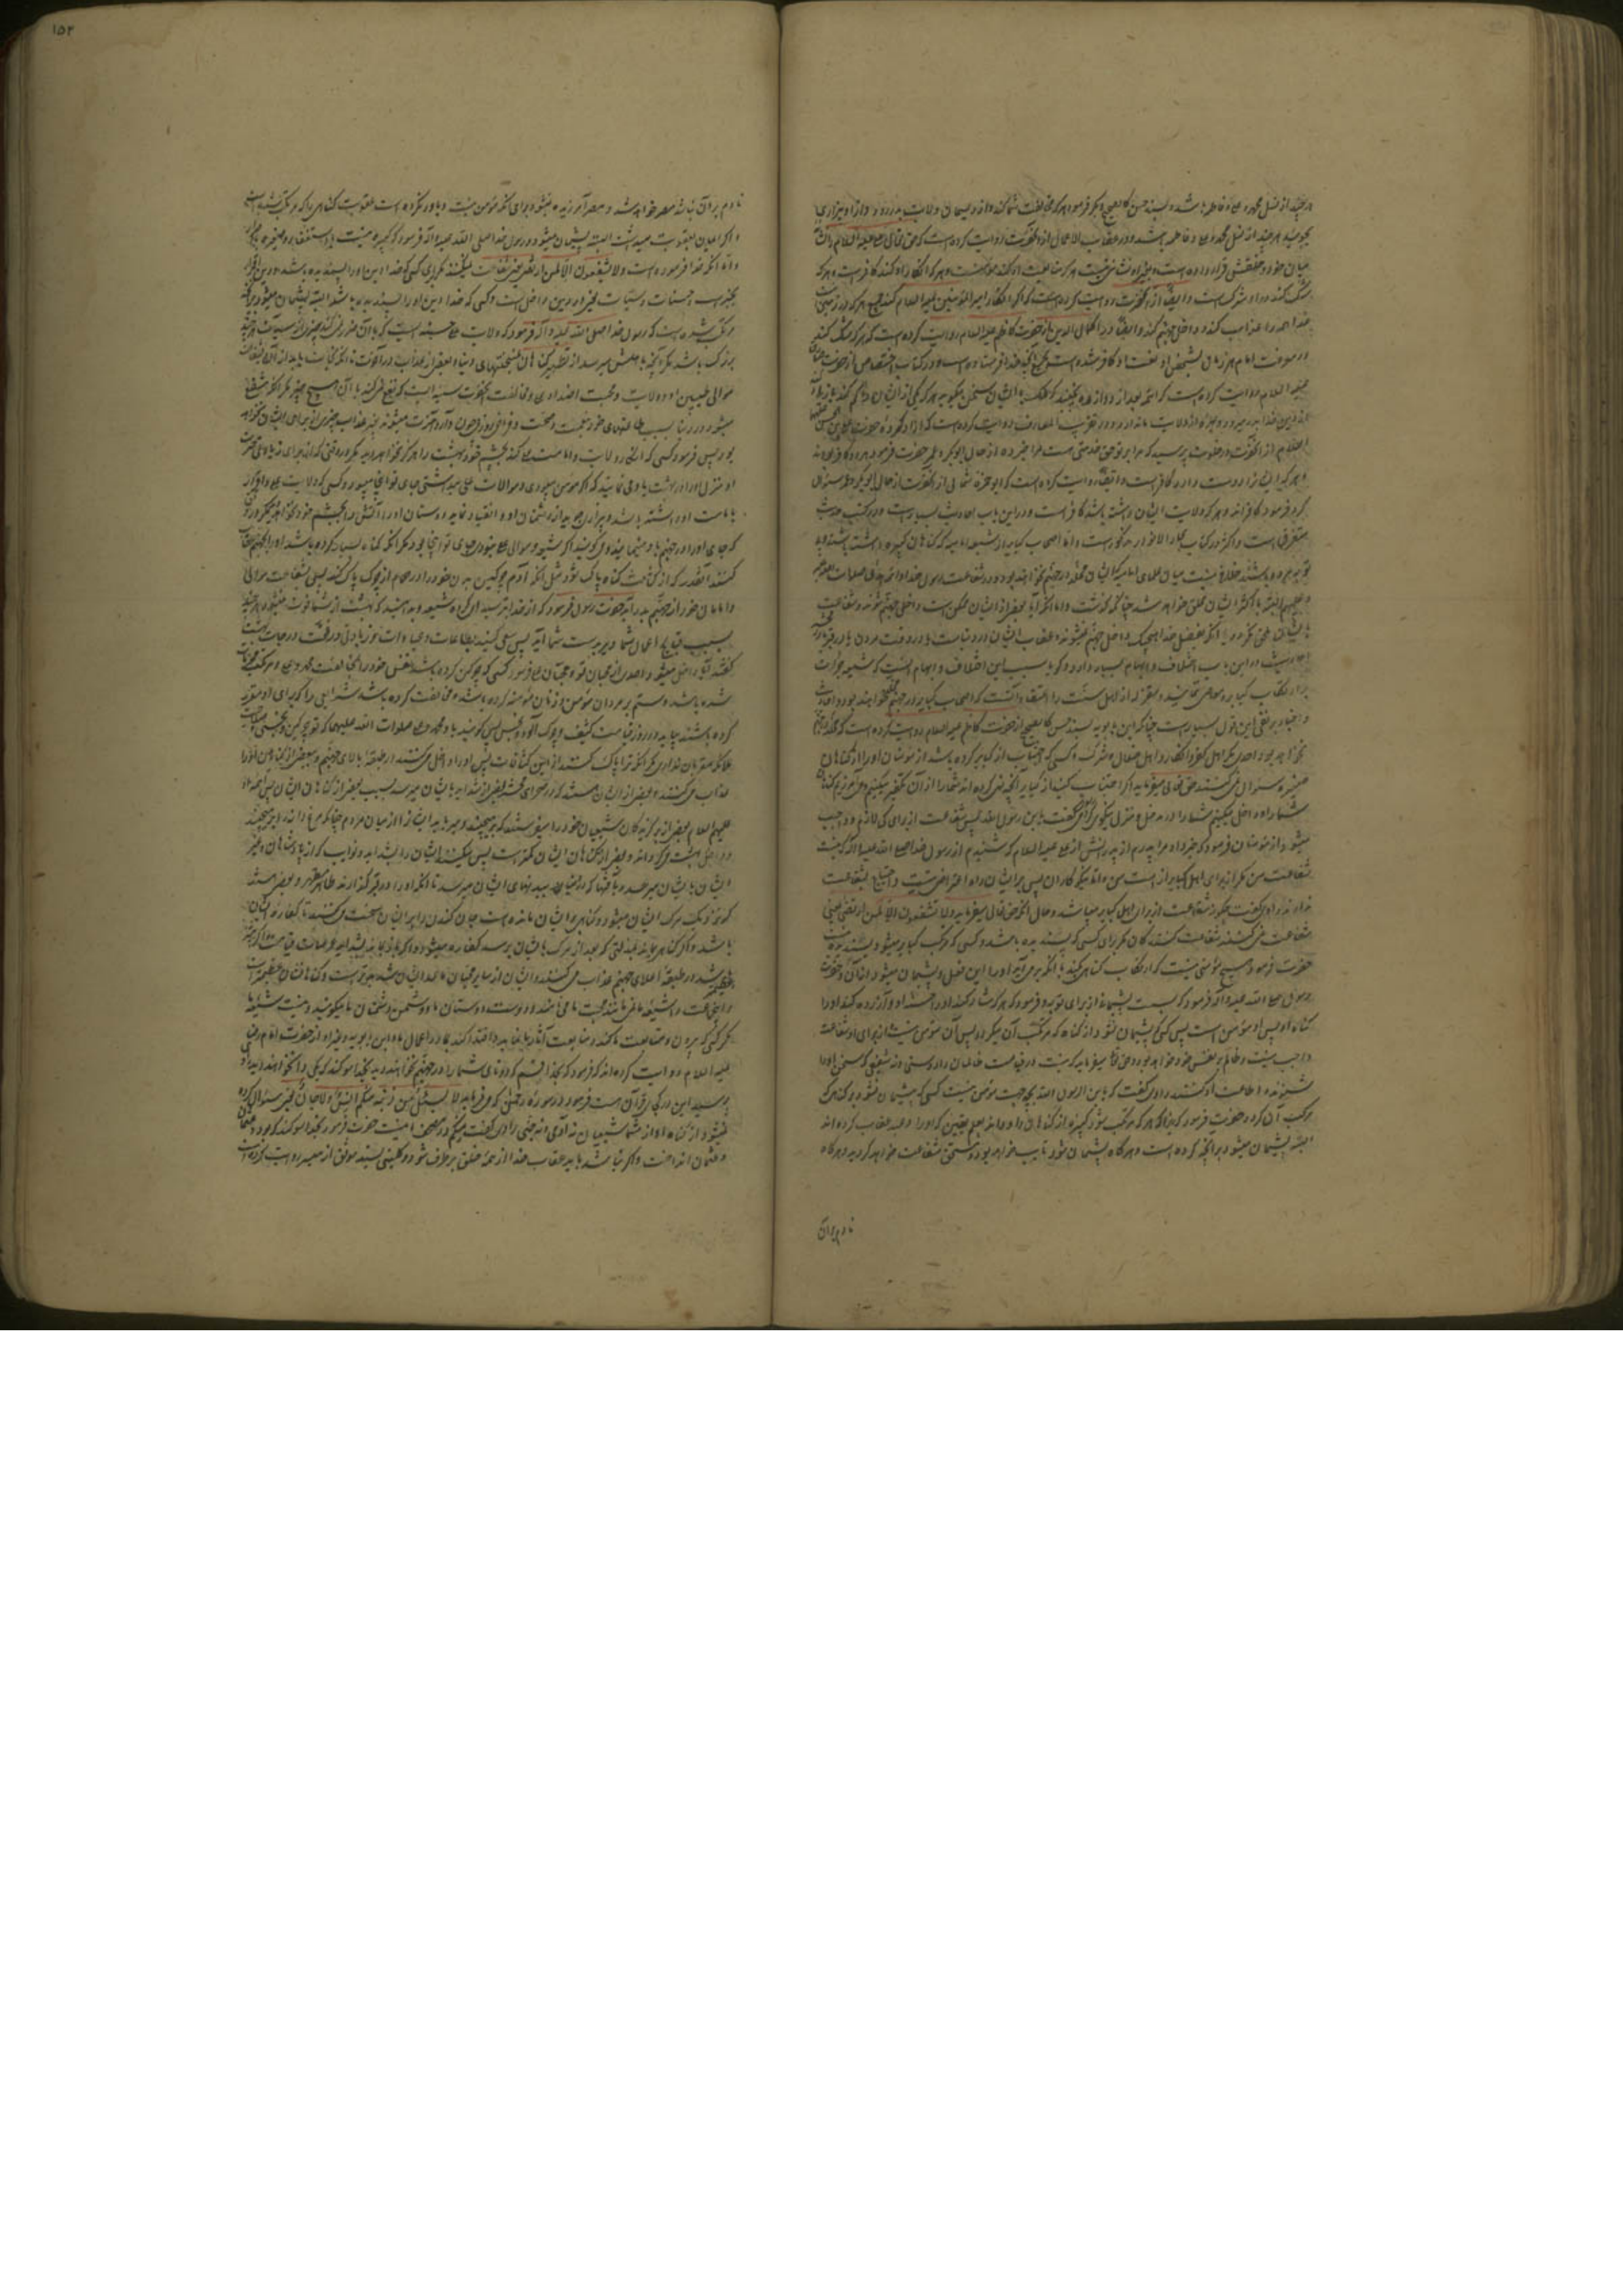 هرچند از نسل محمد و علی و فاطمه باشد و بسند حسن کالصحیح دیگر فرمود هر که مخالفت شما کند و از ریسمان ولایت بدر رود و از او بیزاری
بجوئید هرچند از نسل محمد و علی و فاطمه باشد و در عقاب الاعمال از آنحضرت روایت کرده است که حق تعالی علی علیه السلام را نشانه
میان خود و خلقش قرار داده است و بغیر او نشانی نیست هر که متابعت او کند مؤمنست و هر که انکار او کند کافر است و هر که
شک کند در او مشرک است و ایضا از آنحضرت روایت کرده است که اگر انکار امیر المؤمنین علیه السلام کنند جمیع هر که در زمین است
خدا همه را عذاب کند و داخل جهنم کند و ایضا در اکمال الدین از حضرت کاظم علیه السلام روایت کرده است که هر که شک کند
در معرفت امام هر زمان بشخص او و نعت او کافر شده است بجمیع آنچه خدا فرستاده است و در کتاب اختصاص از حضرت
علیه السلام روایت کرده است که ائمه بعد از
از دین خدا بدر میرود و بهره از ولایت ما ندارد و در تقریب المعارف روایت کرده است که آزاد کرده حضرت علی بن الحسین علیهما
السلام از آنحضرت در خلوت پرسید که مرا بر تو حق خدمتی هست مرا خبر ده از حال ابوبکر و عمر حضرت فرمود هر دو کافر بودند
و هر که ایشان را دوست دارد کافر است و ایضا روایت کرده است که ابو حمزه ثمالی از آنحضرت از حال ابوبکر و عمر سؤال
کرد فرمود کافرند و هر که ولایت ایشان داشته باشد کافر است و در این باب احادیث بسیار است و در کتب
متفرق است و اکثر در کتاب بحار الانوار مذکور است و اما اصحاب کبایر از شیعه امامیه که گناهان کبیره داشته باشند و بی
توبه مرده باشند خلافی نیست میان علمای امامیه که ایشان مخلد در جهنم نخواهند بود و در شفاعت رسول خدا و ائمه هدی صلوات الله علیه
و علیهم البته باکثر ایشان ملحق خواهد شد چنانکه گذشت و اما آنکه آیا بعضی از ایشان ممکن است داخل جهنم شوند و شفاعت
بایشان ملحق نگردد یا آنکه بفضل خدا هیچیک داخل جهنم نمیشوند و عقاب ایشان در دنیاست یا در وقت مردن یا در قبر
احادیث در این باب اختلاف و ابهام بسیار دارد و گویا سبب این اختلاف و ابهام آنست که شیعه جرأت
بر ارتکاب کبایر و معاصی ننمایند و معتزله از اهل سنت را اعتقاد آنست که اصحاب کبایر در جهنم مخلد خواهند بود و احادیث
و اخبار بر نفی این قول بسیار است چنانکه ابن بابویه بسند حسن کالصحیح از حضرت کاظم علیه السلام روایت کرده است که مخلد در جهنم
نخواهد بود احدی مگر اهل کفر و انکار و اهل ضلال و شرک و کسی که اجتناب از کبایر کرده باشد از مؤمنان او را از گناهان
صغیره سئوال نمی‌کنند حق تعالی میفرماید اگر اجتناب کنید از کبایر آنچه نهی کرده اند شما را از آن تکفیر میکنیم و می‌آمرزیم گناهان
شما را و داخل میکنیم شما را در مدخل و منزل نیکوی گرامی راوی گفت یابن رسول الله پس شفاعت از برای کی لازم و واجب
میشود از مؤمنان فرمود که خبر داد مرا پدرم از پدرانش از علی علیه السلام که شنیدم از رسول خدا صلی الله علیه و آله که نیست
شفاعت من مگر از برای اهل کبایر از امت من و اما نیکوکاران پس بر ایشان راه اعتراض نیست و احتیاج بشفاعت
ندارند راوی گفت چگونه شفاعت از برای اهل کبایر میباشد و حال آنکه حق تعالی میفرماید و لا یشفعون الا لمن ارتضی یعنی
شفاعت نمی‌کنند شفاعت کنندگان مگر برای کسی که پسندیده باشد و کسی که مرتکب کبایر میشود پسندیده نیست
حضرت فرمود هیچ مؤمنی نیست که ارتکاب گناهی کند تا آنکه بدمی‌آید او را این فعل و پشیمان میشود از آن و حضرت
رسول صلی الله علیه و آله فرمود که بس است پشیمانی از برای توبه و فرمود که هر که شاد کند او را حسنه او و آزرده کند او را
گناه او پس او مؤمن است پس کسی که پشیمان نشود از گناه که مرتکب آن میگردد پس آن مؤمن نیست از برای او شفاعت
واجب نیست و ظالم بر نفس خود خواهد بود و حق تعالی میفرماید که نیست در قیامت ظالمان را دوستی و نه شفیعی که سخن او را
شنوند و اطاعت او کنند راوی گفت که یابن رسول الله بچه جهت مؤمن نیست کسی که پشیمان نشود بر گناهی که
مرتکب آن گردد حضرت فرمود که زیرا که هر که مرتکب شود کبیره از گناهان را و داند بعلم یقین که او را بر آن عقاب کرده اند
البته پشیمان میشود بر آنچه کرده است و هرگاه پشیمان شود تایب خواهد بود و مستحق شفاعت خواهد گردید و هرگاه
نادم بر آن
۱۵۲
نادم بر آن نباشد مصر خواهد شد و مصر آمرزیده نمیشود برای آنکه مؤمن نیست و باور نکرده است عقوبت گناهی را که مرتکب شده است
و اگر ایمان بعقوبت میداشت البته پشیمان میشد و رسول خدا صلی الله علیه و آله فرمود که کبیره نیست با استغفار و صغیره
و اما آنکه خدا فرموده است و لا یشفعون الا لمن ارتضی یعنی شفاعت نمیکنند مگر برای کسی که خدا دین او را پسندیده باشد و دین اقرار
بجزای حسنات و سیئات
مرتکب شده است که رسول خدا صلی الله علیه و آله فرمود که ولایت علی حسنه ایست که با آن ضرر نمی‌کند چیزی از سیئات هرچند
بزرگ باشد مگر آنچه باهلش میرسد از تطهیر گناهان بمحنتهای دنیا و بعضی از عذاب در آخرت تا آنکه نجات یابند از آن بشفاعت
موالی طیبین او و ولایت و محبت اضداد علی و مخالفت آنحضرت سیئه ایست که نفع نمی‌کند با آن هیچ چیز مگر آنکه منتفع
میشود در دنیا بسبب طاعتهای خود بنعمت و صحت و فراخی روزی چون وارد آخرت میشوند بجز عذاب چیزی از برای ایشان نخواهد
بود پس فرمود کسی که انکار ولایت و امامت علی کند بچشم خود بهشت را هرگز نخواهد دید مگر در وقتی که
او منزل او را در بهشت باو می‌نمایند که اگر مؤمن میبودی و موالات علی میداشتی جای تو اینجا میبود و کسی که ولایت علی و اقرار
بامامت او داشته باشد و بیزاری جوید از دشمنان او و انقیاد نماید دوستان او را آتش را بچشم خود نخواهد دید مگر در وقتی
که جای او را در جهنم باو مینمایند و می‌گویند اگر شیعه و موالی علی نمیبودی جای تو اینجا بود مگر آنکه گناه بسیار کرده باشد او را بجهنم عذاب
کنند آنقدر که از کثافت گناه پاک شود مثل آنکه آدم چرکین بدن خود را در حمام از چرک پاک کند پس بشفاعت موالی
و امامان خود از جهنم بدر آید حضرت رسول فرمود که از خدا بترسید ای گروه شیعه و بدانید که بهشت از شما فوت نمیشود هرچند
بسبب قبایح اعمال شما دیر بدست شما آید پس سعی کنید بطاعات و عبادات در زیادتی و رفعت درجات بهشت
گفتند آیا داخل میشود احدی از محبان تو و محبان علی فرمود کسی که چرکین کرده باشد نفس خود را بمخالفت محمد و علی و مرتکب محرمات
شده باشد و ستم بر مردان مؤمن و زنان مؤمنه کرده باشد و مخالفت کرده باشد شرایعی را که برای او مقرر
کرده باشند بیاید در روز قیامت کثیف و چرک آلود و نجس پس گویند باو محمد و علی صلوات الله علیهما که تو چرکین و نجسی و صلاحیت
ملائکه مقربان نداری مگر آنکه ترا پاک کنند از این کثافات پس او را داخل می‌کنند در طبقه بالای جهنم و ببعضی از گناهان او را
عذاب می‌کنند و بعضی از ایشان هستند که در صحرای محشر بعضی از شداید بایشان میرسد بسبب بعضی از گناهان ایشان پس ائمه هدی
علیهم السلام بعضی از برگزیدگان شیعیان خود را میفرستند که برچینند و میربایند ایشان را از میان مردم چنانکه مرغ دانه را برچیند
و داخل بهشت می‌گردانند و بعضی از گناهان ایشان کمتر است پس پاک میکنند ایشان را بشداید و نوایب که از پادشاهان و غیر
ایشان بایشان میرسد و بآفتها که در دنیا به بدنهای ایشان میرسد تا آنکه او را در قبر گذارند طاهر و مطهر و بعضی هستند
که نزدیک مرگ ایشان میشود و گناهی بر ایشان مانده است جان کندن را بر ایشان سخت می‌کنند تا کفاره گناهان
باشد و اگر گناهی بماند
عظیم باشد در طبقه اعلای جهنم عذاب می‌کنند و ایشان از سایر محبان ما عذاب ایشان شدیدتر است و گناهان ایشان عظیمتر است
و این جماعت را شیعه ما نمی‌نامند محب ما می‌نامند و دوست دوستان ما و دشمن دشمنان ما میگویند و نیست شیعه ما
مگر کسی که پیروی و متابعت ما کند و متابعت آثار ما نماید و اقتدا کند بما در اعمال ما و ابن بابویه و غیر او از حضرت امام رضا
علیه السلام روایت کرده اند که فرمود که بخدا قسم که دو تای شما را در جهنم نخواهند دید بخدا سوگند که یکی را نخواهند دید راوی
پرسید این در کجای قرآن است فرمود در سوره رحمن که می‌فرماید لا یسئل عن ذنبه منکم انس و لا جان یعنی سئوال کرده
نمیشود از گناه او از شما شیعیان نه آدمی و نه جنی راوی گفت منکم در مصحف ما نیست حضرت فرمود بخدا سوگند که بود و
و عثمان انداخت و اگر نباشد باید عقاب خدا از همه خلق برطرف شود و کلینی بسند موثق از میسر روایت کرده است